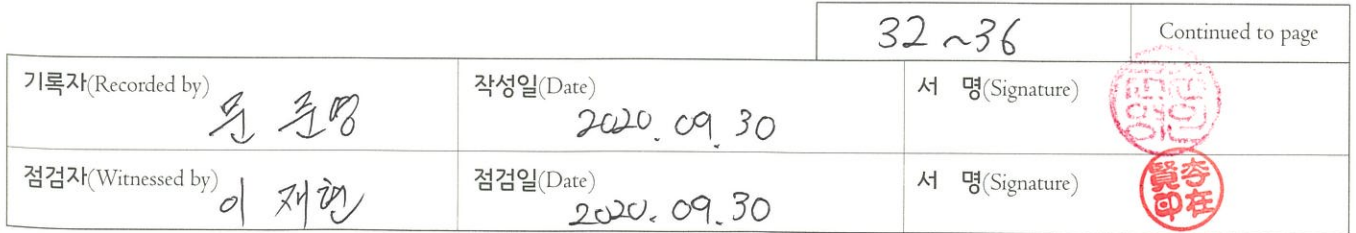 32~36 Continued to page
기록자(Recorded by) 문 준명 작성일(Date) 2020. 09. 30 서 명(Signature)
점검자(Witnessed by) 이 재현 점검일(Date) 2020. 09. 30 서 명(Signature) 李在賢印